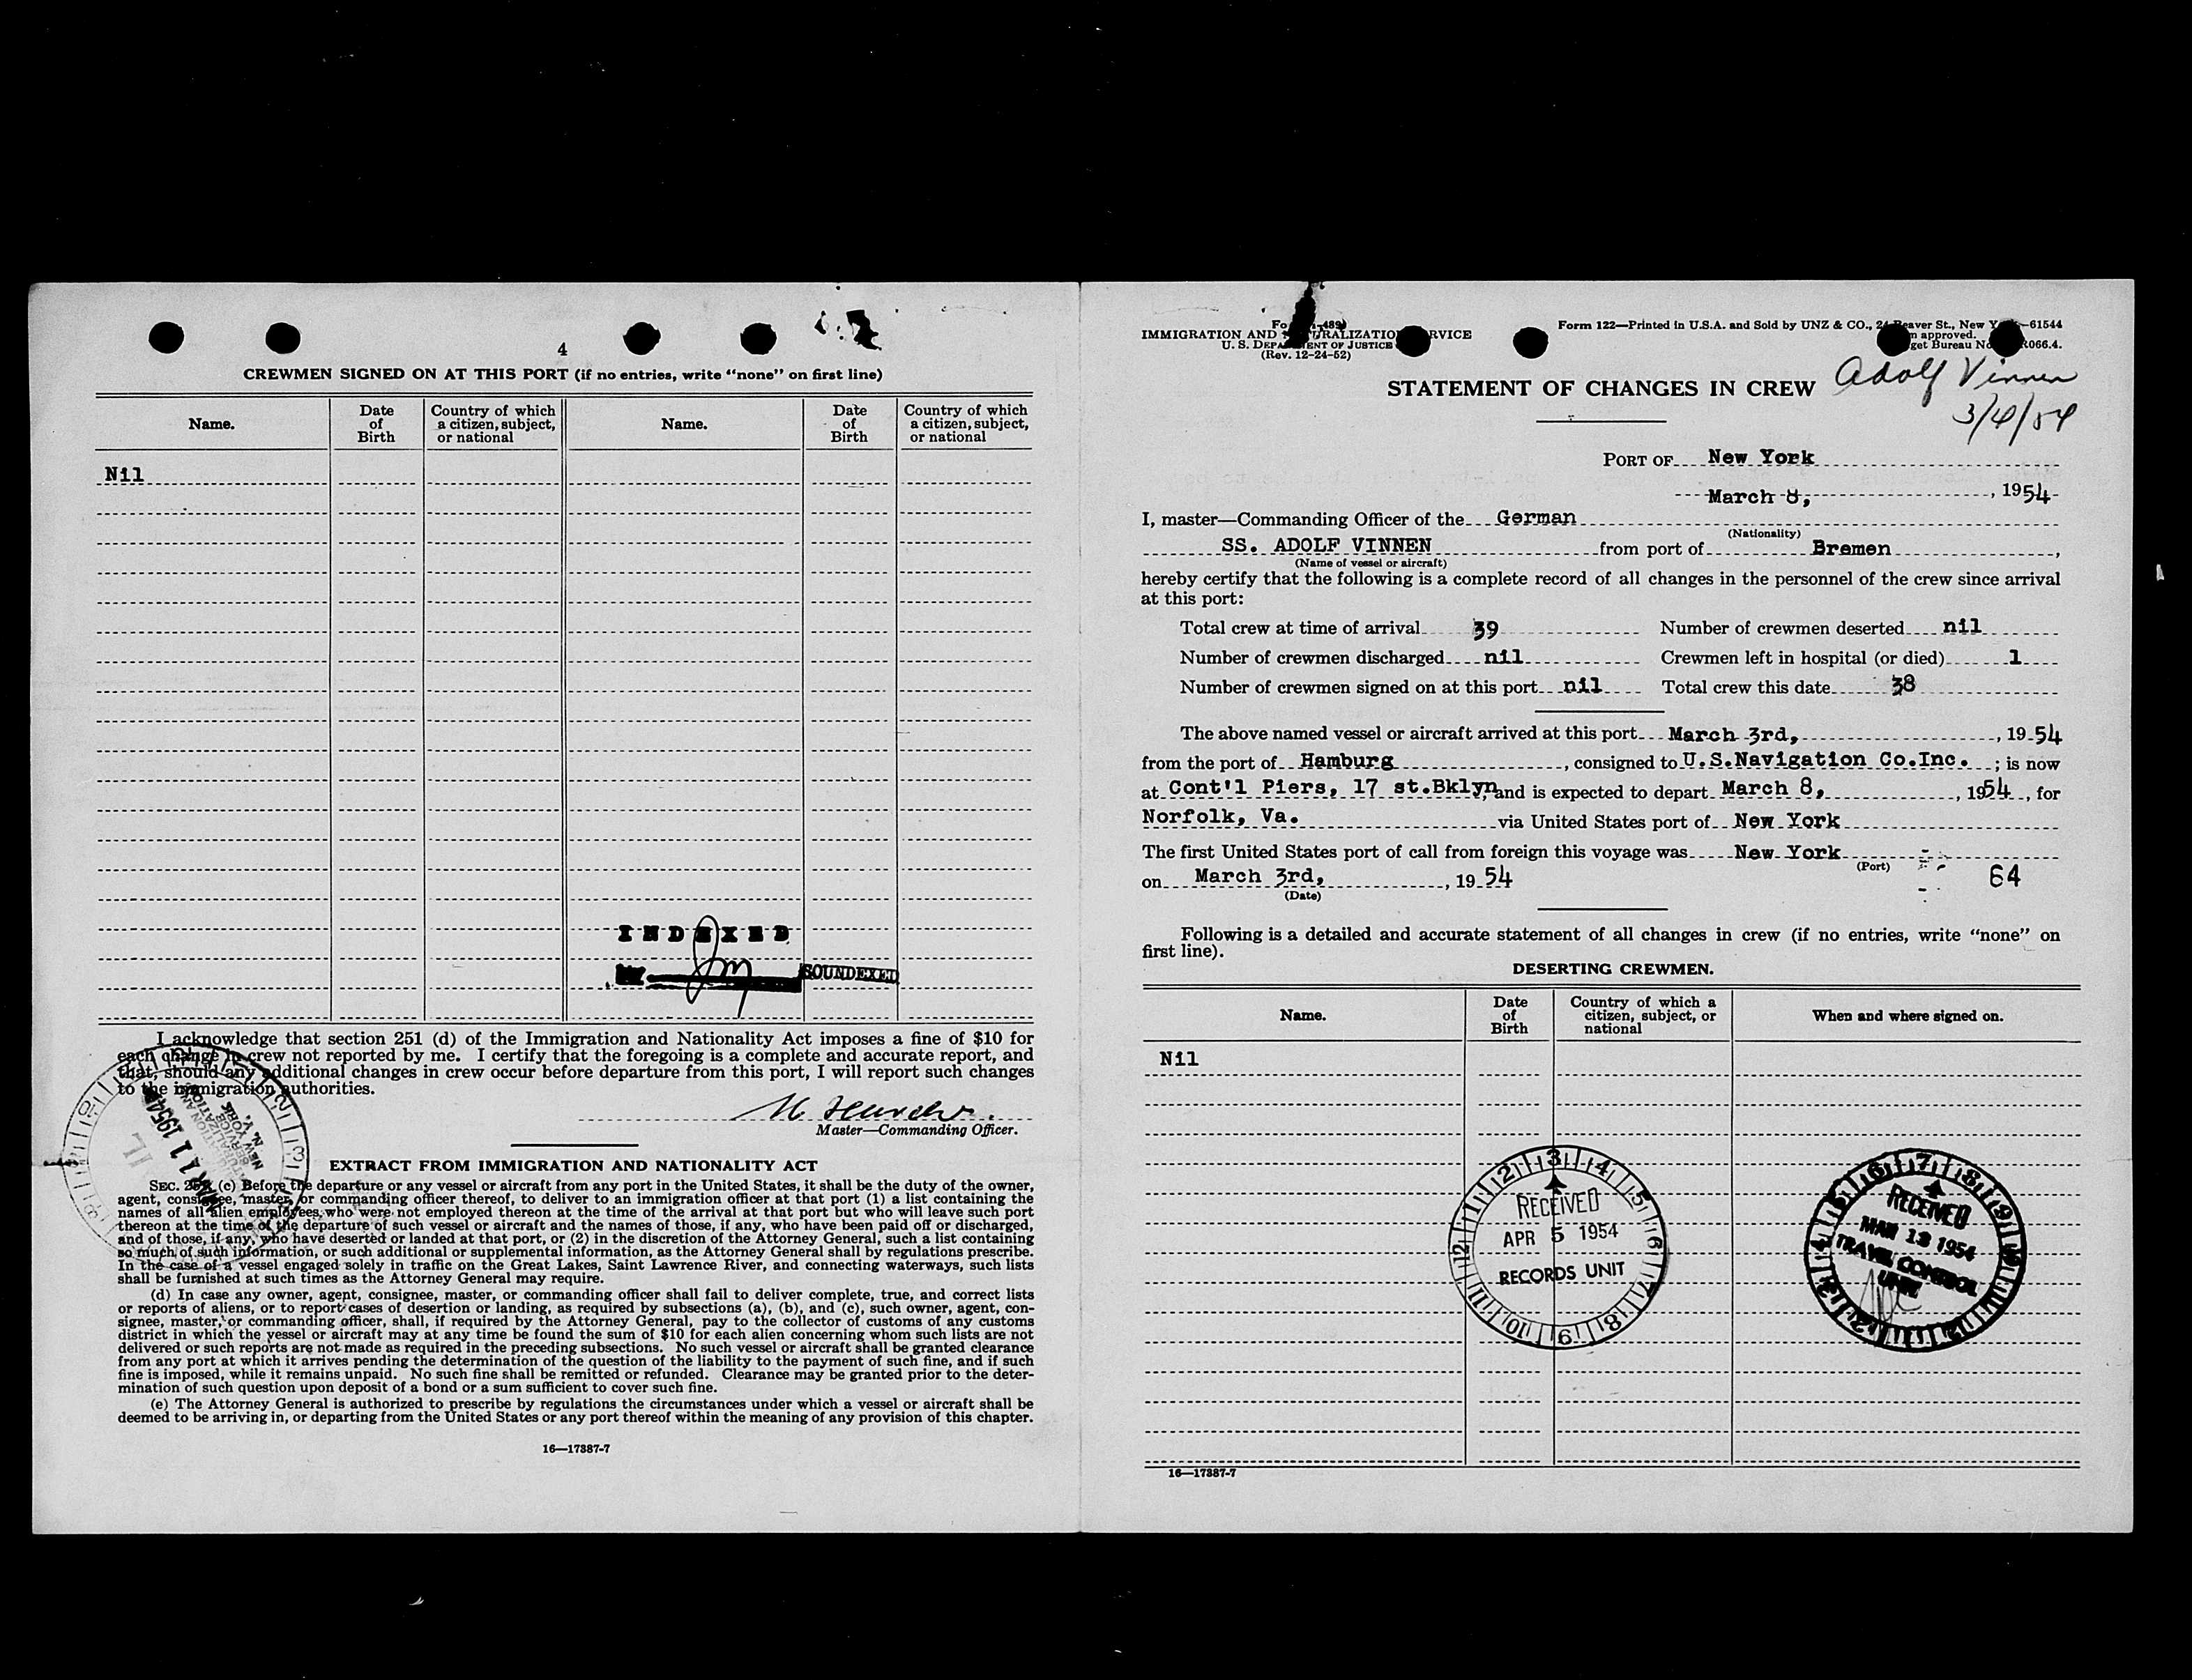 4
CREWMEN SIGNED ON AT THIS PORT (if no entries, write “none” on first line)
Name. Date of Birth Country of which a citizen, subject, or national Name. Date of Birth Country of which a citizen, subject, or national
Nil
INDEXED
SOUNDEXED
I acknowledge that section 251 (d) of the Immigration and Nationality Act imposes a fine of $10 for
each change in crew not reported by me. I certify that the foregoing is a complete and accurate report, and
that, should any additional changes in crew occur before departure from this port, I will report such changes
to the immigration authorities.
Master—Commanding Officer.
EXTRACT FROM IMMIGRATION AND NATIONALITY ACT
SEC. (c) Before the departure or any vessel or aircraft from any port in the United States, it shall be the duty of the owner,
agent, consignee, master, or commanding officer thereof, to deliver to an immigration officer at that port (1) a list containing the
names of all alien employees who were not employed thereon at the time of the arrival at that port but who will leave such port
thereon at the time of the departure of such vessel or aircraft and the names of those, if any, who have been paid off or discharged,
and of those, if any, who have deserted or landed at that port, or (2) in the discretion of the Attorney General, such a list containing
so much of such information, or such additional or supplemental information, as the Attorney General shall by regulations prescribe.
In the case of a vessel engaged solely in traffic on the Great Lakes, Saint Lawrence River, and connecting waterways, such lists
shall be furnished at such times as the Attorney General may require.
(d) In case any owner, agent, consignee, master, or commanding officer shall fail to deliver complete, true, and correct lists
or reports of aliens, or to report cases of desertion or landing, as required by subsections (a), (b), and (c), such owner, agent, con-
signee, master, or commanding officer, shall, if required by the Attorney General, pay to the collector of customs of any customs
district in which the vessel or aircraft may at any time be found the sum of $10 for each alien concerning whom such lists are not
delivered or such reports are not made as required in the preceding subsections. No such vessel or aircraft shall be granted clearance
from any port at which it arrives pending the determination of the question of the liability to the payment of such fine, and if such
fine is imposed, while it remains unpaid. No such fine shall be remitted or refunded. Clearance may be granted prior to the deter-
mination of such question upon deposit of a bond or a sum sufficient to cover such fine.
(e) The Attorney General is authorized to prescribe by regulations the circumstances under which a vessel or aircraft shall be
deemed to be arriving in, or departing from the United States or any port thereof within the meaning of any provision of this chapter.
16—17387-7
IMMIGRATION AND NATURALIZATION SERVICE
U. S. DEPARTMENT OF JUSTICE
(Rev. 12-24-52)
Form 122—Printed in U.S.A. and Sold by UNZ & CO., 24 Beaver St., New —61544
approved.
R066.4.
Adolf Vinnen
3/4/54
STATEMENT OF CHANGES IN CREW
PORT OF New York
March 8, , 1954
I, master—Commanding Officer of the German
(Nationality)
SS. ADOLF VINNEN from port of Bremen ,
(Name of vessel or aircraft)
hereby certify that the following is a complete record of all changes in the personnel of the crew since arrival
at this port:
Total crew at time of arrival 39 Number of crewmen deserted nil
Number of crewmen discharged nil Crewmen left in hospital (or died) 1
Number of crewmen signed on at this port nil Total crew this date 38
The above named vessel or aircraft arrived at this port March 3rd, , 19 54
from the port of Hamburg , consigned to U.S.Navigation Co.Inc. ; is now
at Cont'l Piers, 17 st.Bklyn, and is expected to depart March 8, , 1954 , for
Norfolk, Va. via United States port of New York
The first United States port of call from foreign this voyage was New York
(Port)
on March 3rd, , 19 54
(Date)
64
Following is a detailed and accurate statement of all changes in crew (if no entries, write “none” on
first line).
DESERTING CREWMEN.
Name. Date of Birth Country of which a citizen, subject, or national When and where signed on.
Nil
RECEIVED
APR 5 1954
RECORDS UNIT
RECEIVED
MAR 18 1954
TRAVEL CONTROL
UNIT
16—17387-7